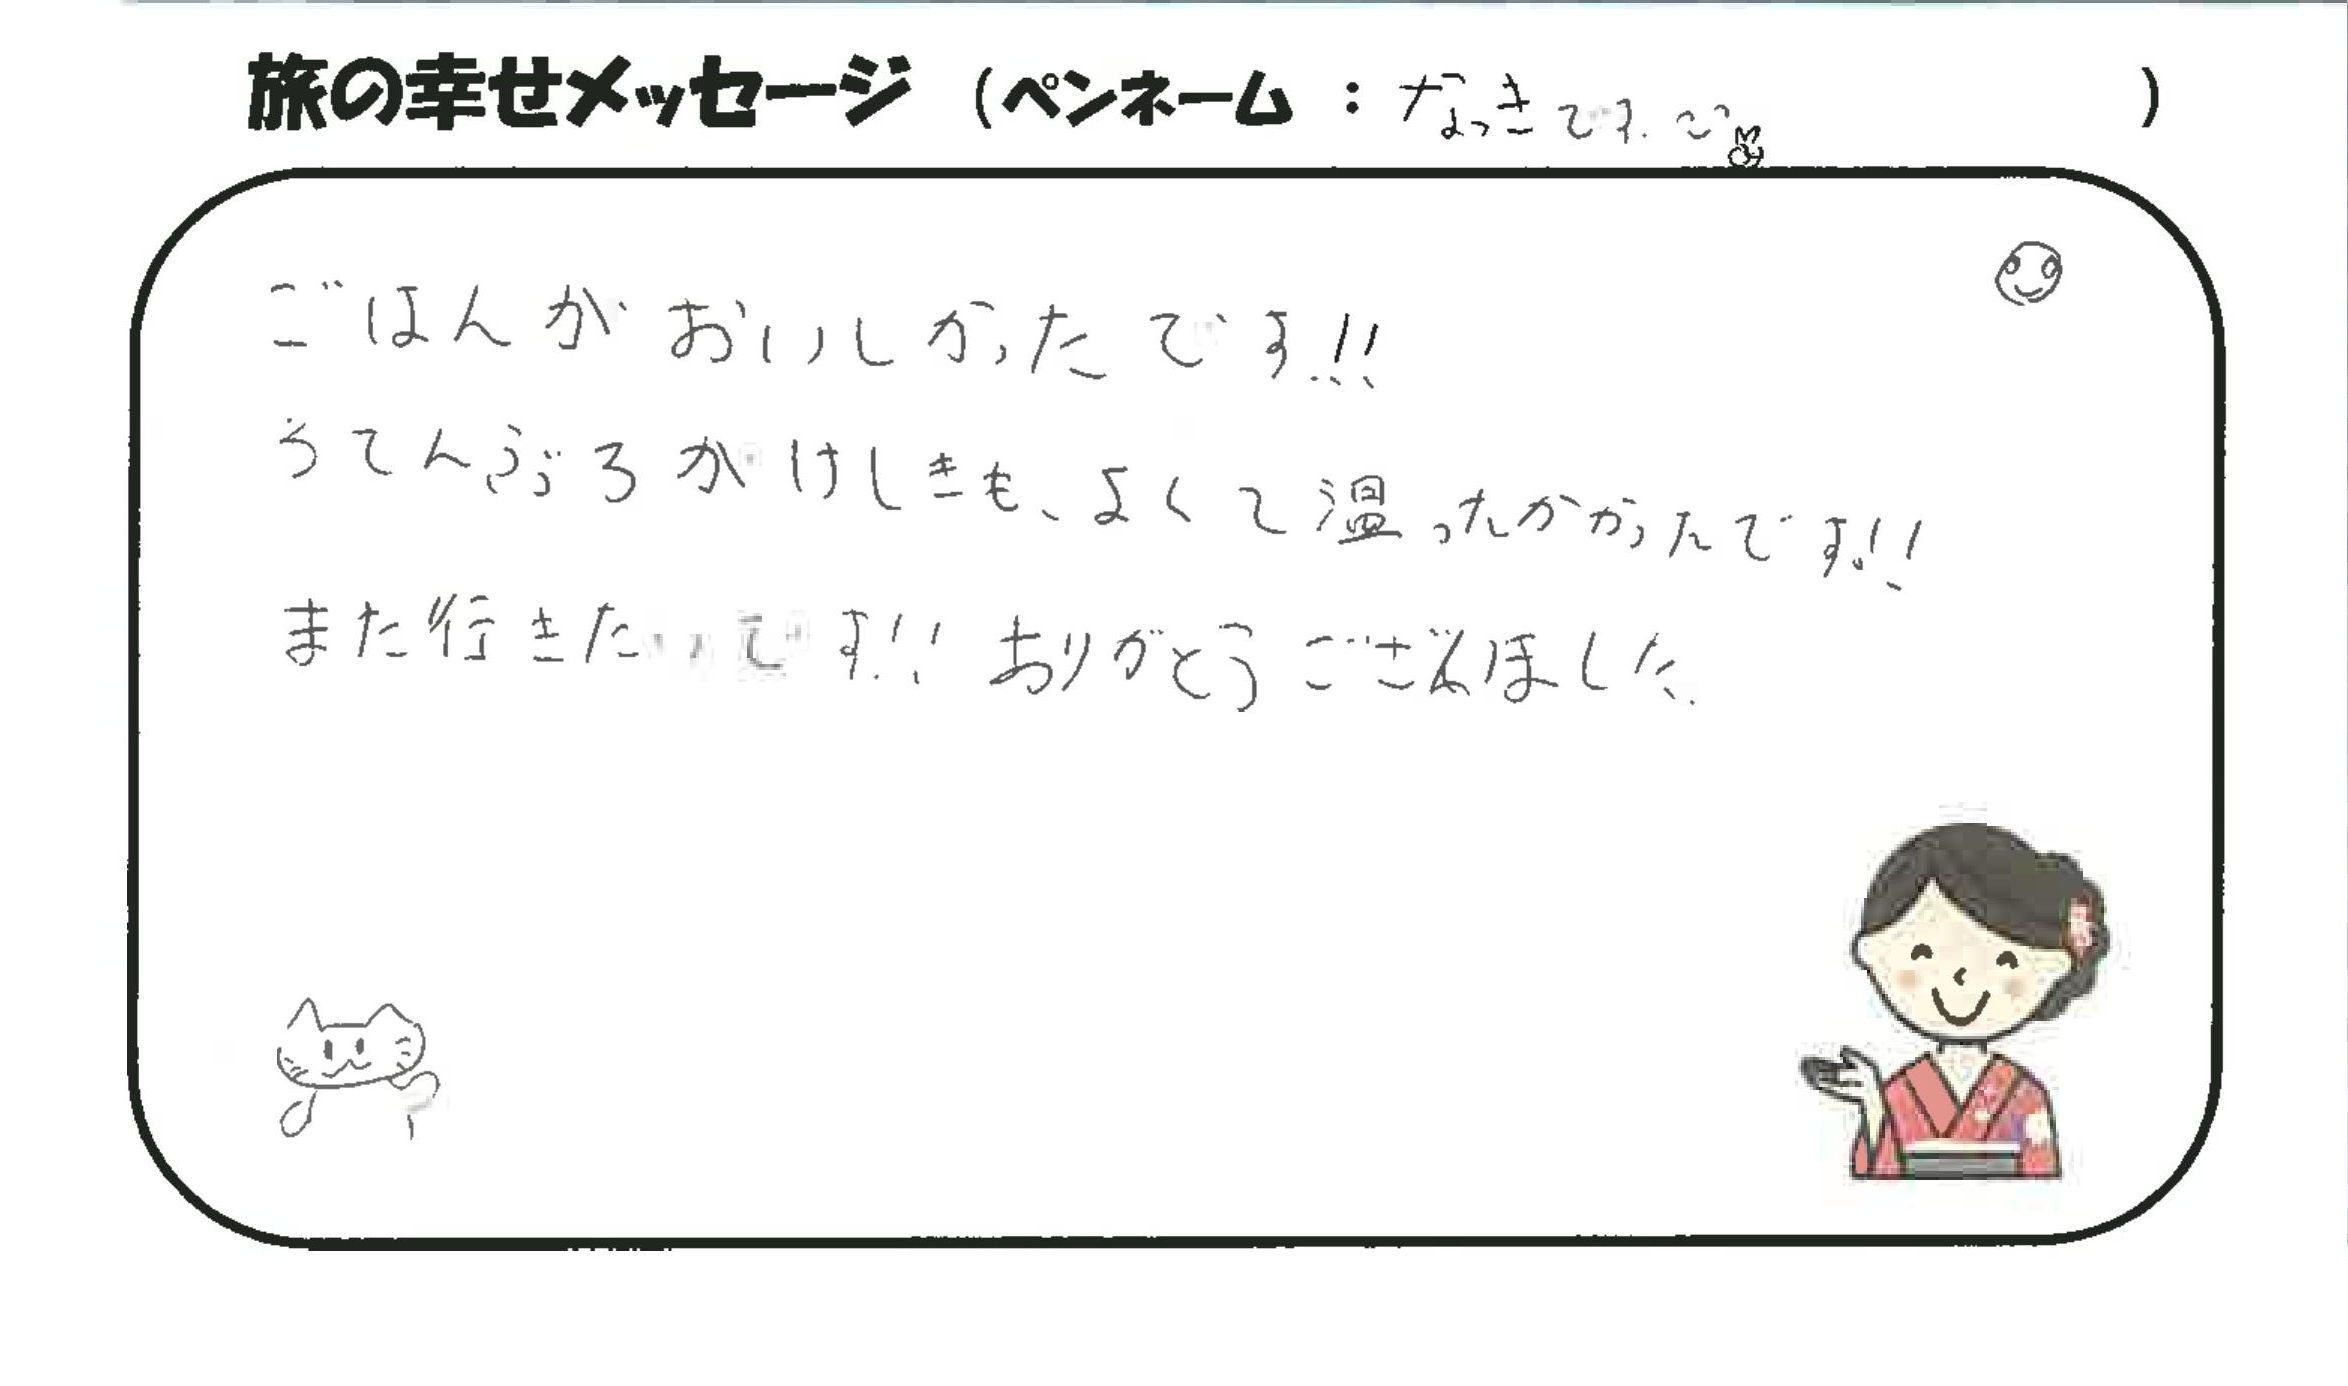 旅の幸せメッセージ (ペンネーム : なっきです。)
ごはんがおいしかったです!!
ろてんぶろがけしきも、よくて温ったかかったです!!
また行きたいです!! ありがとうございました